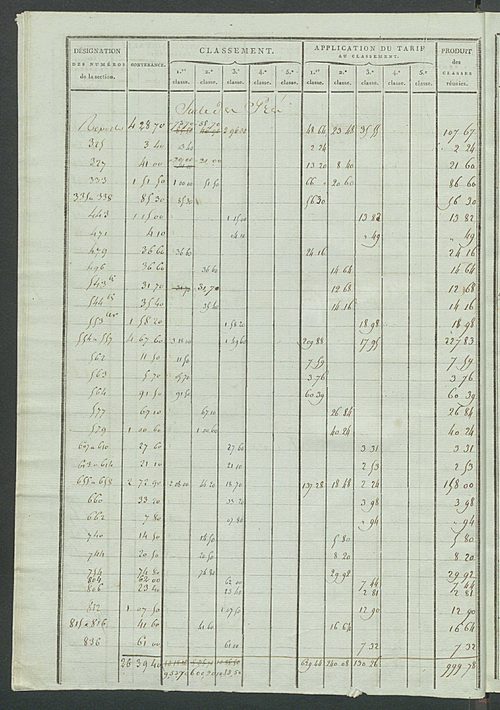 DÉSIGNATION DES NUMÉROS de la section. CONTENANCE. CLASSEMENT. APPLICATION DU TARIF AU CLASSEMENT. PRODUIT des CLASSES réunies.
1.re classe. 2.e classe. 3.e classe. 4.e classe. 5.e classe. 1.re classe. 2.e classe. 3.e classe. 4.e classe. 5.e classe.
Suite des Prés
Report 4 28 70 48 66 23 48 35 53 107 67
315 3 40 3 40 2 24 2 24
327 41 00 21 00 13 20 8 40 21 60
333 1 51 50 1 00 00 51 50 66 20 60 86 60
335 à 338 85 30 85 30 56 30 56 30
443 1 15 00 1 15 00 13 82 13 82
471 4 10 04 10 49 49
479 36 60 36 60 24 16 24 16
496 36 60 36 60 14 64 14 64
543 bis 31 70 31 70 31 70 12 68 12 68
544 bis 35 40 35 40 14 16 14 16
553 ter 1 58 20 1 58 20 18 98 18 98
554 à 557 4 67 60 3 18 00 1 49 60 209 88 17 95 227 83
562 11 50 11 50 7 59 7 59
563 5 70 05 70 3 76 3 76
564 91 50 91 50 60 39 60 39
577 67 10 67 10 26 84 26 84
579 1 00 60 1 00 60 40 24 40 24
607 à 610 27 60 27 60 3 31 3 31
612 à 614 21 10 21 10 2 53 2 53
655 à 658 2 72 90 2 08 00 46 20 18 70 137 28 18 48 2 24 158 00
660 33 20 33 20 3 98 3 98
662 7 80 07 80 94 94
740 14 50 14 50 5 80 5 80
744 20 50 20 50 8 20 8 20
754 74 80 74 80 29 92 29 92
804 62 00 62 00 7 44 7 44
806 23 40 23 40 2 81 2 81
812 1 07 50 1 07 50 12 90 12 90
815 à 816 41 60 41 60 16 64 16 64
836 61 00 61 00 7 32 7 32
26 39 40 629 46 240 08 130 26 999 78